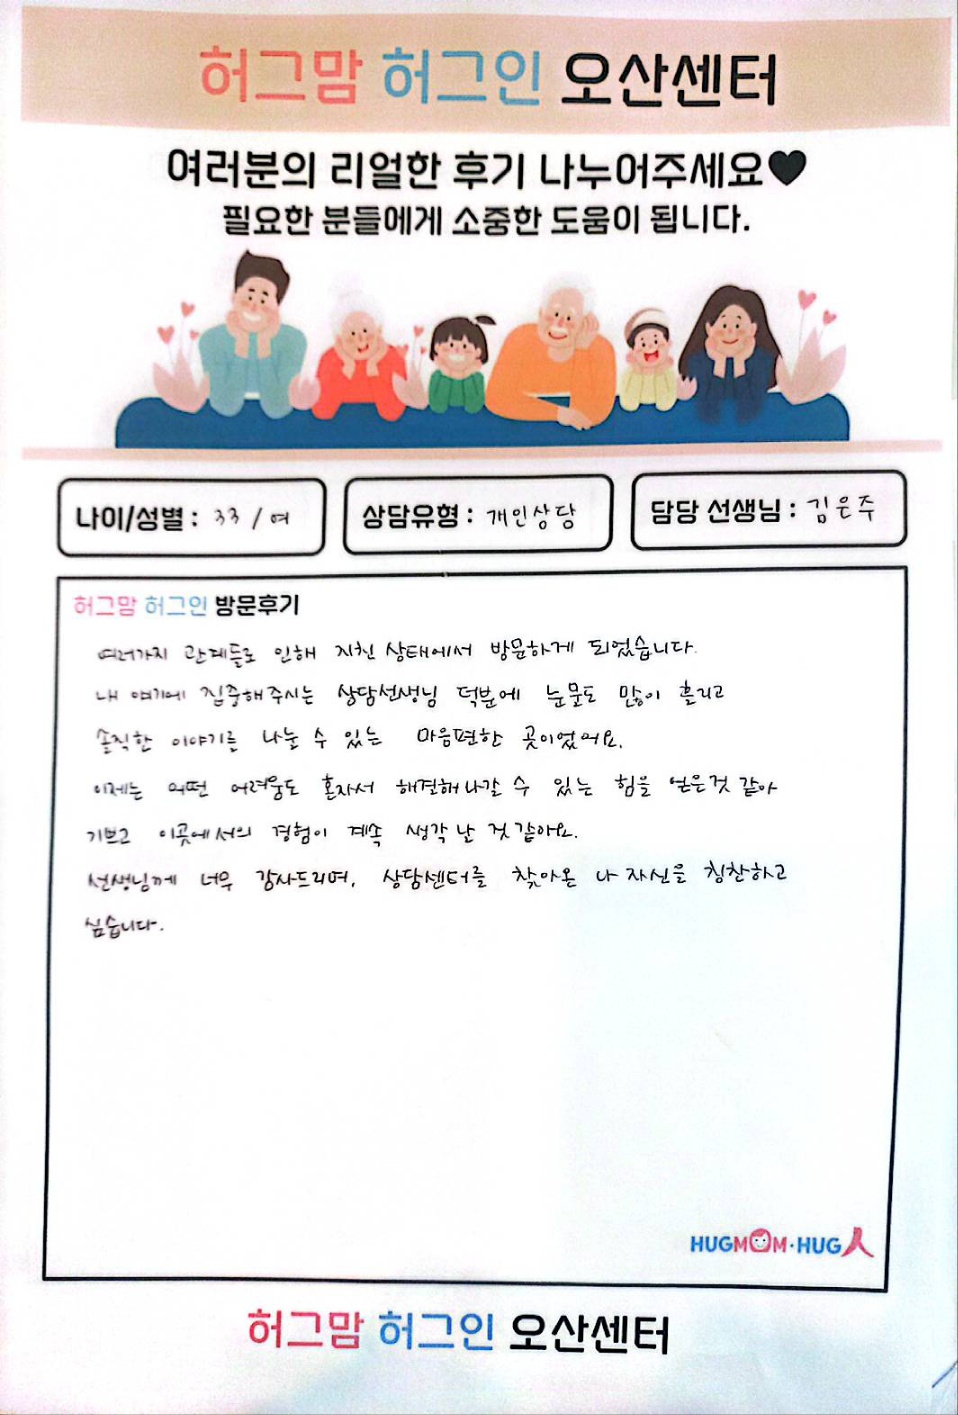 허그맘 허그인 오산센터
여러분의 리얼한 후기 나누어주세요♥
필요한 분들에게 소중한 도움이 됩니다.
나이/성별 : 33 / 여
상담유형 : 개인상담
담당 선생님 : 김은주
허그맘 허그인 방문후기
여러가지 관계들로 인해 지친 상태에서 방문하게 되었습니다.
내 얘기에 집중해주시는 상담선생님 덕분에 눈물도 많이 흘리고
솔직한 이야기를 나눌 수 있는 마음편한 곳이었어요.
이제는 어떤 어려움도 혼자서 해결해나갈 수 있는 힘을 얻은것 같아
기쁘고 이곳에서의 경험이 계속 생각 날 것 같아요.
선생님께 너무 감사드리며, 상담센터를 찾아온 나 자신을 칭찬하고
싶습니다.
HUGMOM·HUG人
허그맘 허그인 오산센터